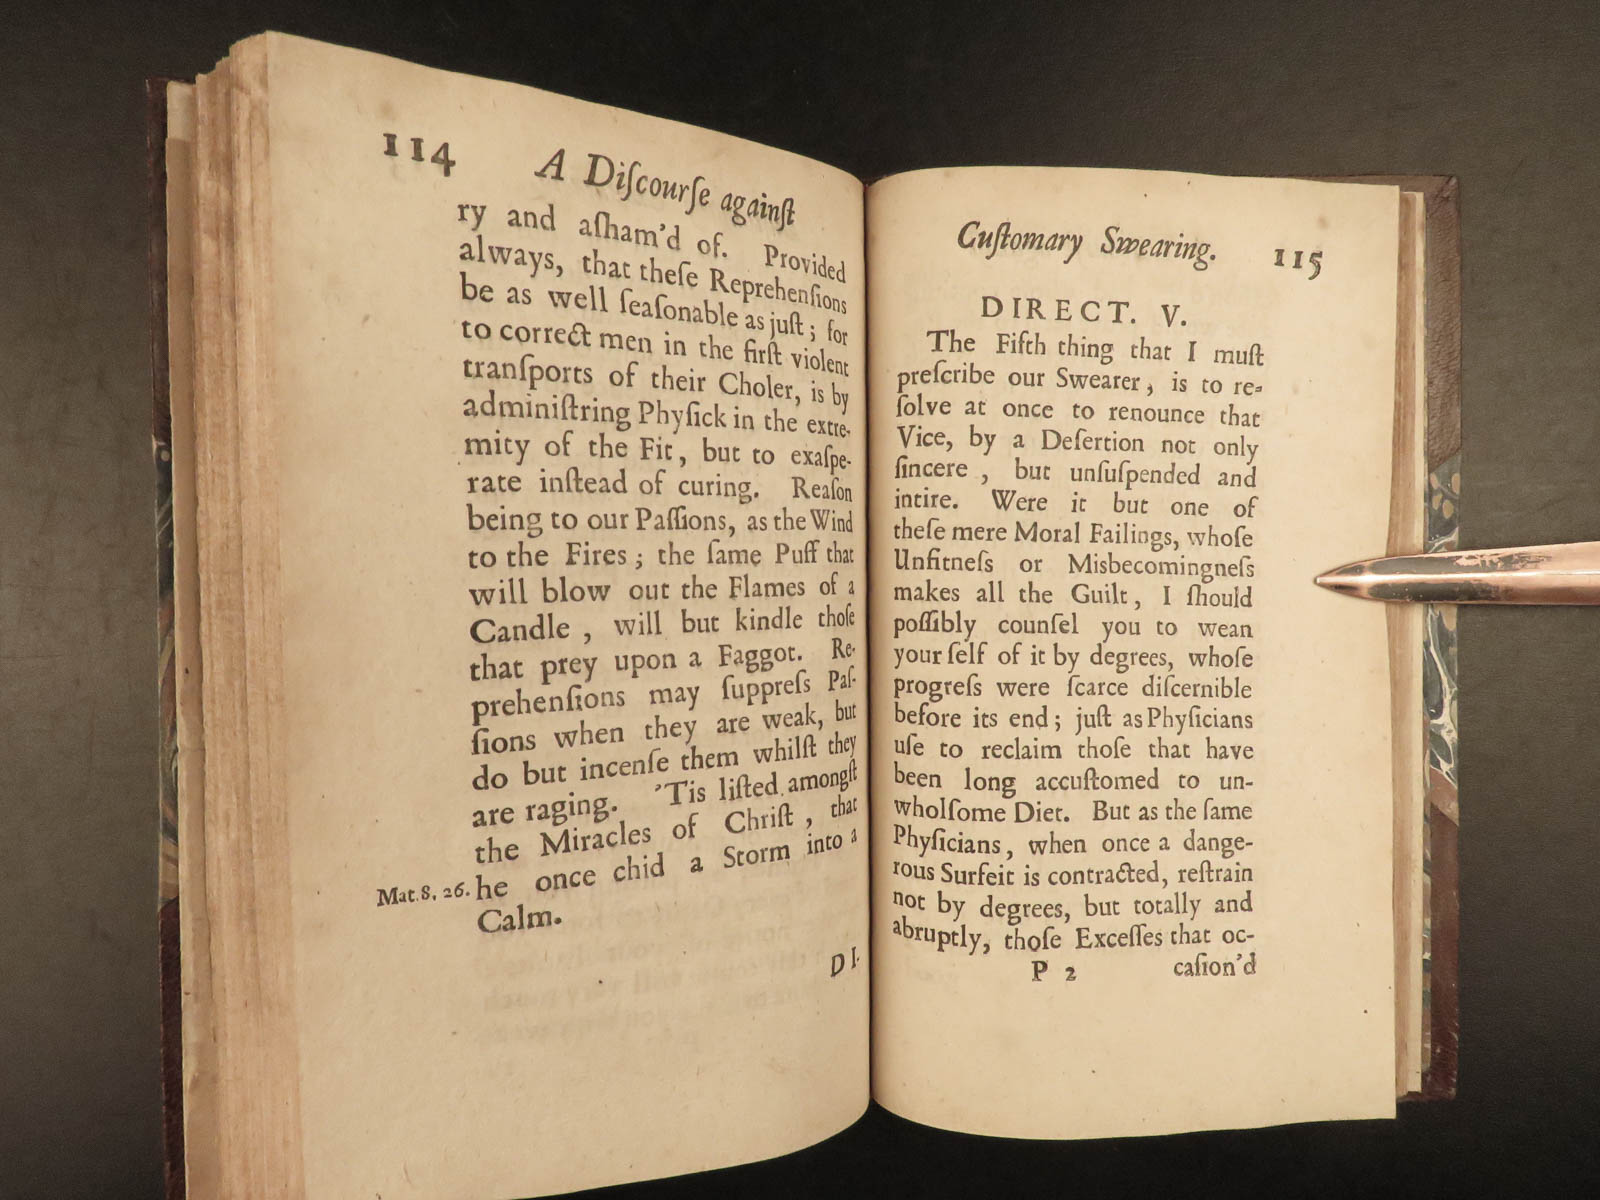 114 A Diſcourſe againſt
ry and aſham'd of. Provided
always, that theſe Reprehenſions
be as well ſeaſonable as juſt; for
to correct men in the firſt violent
tranſports of their Choler, is by
adminiſtring Phyſick in the extre-
mity of the Fit, but to exaſpe-
rate inſtead of curing. Reaſon
being to our Paſſions, as the Wind
to the Fires; the ſame Puff that
will blow out the Flames of a
Candle, will but kindle thoſe
that prey upon a Faggot. Re-
prehenſions may ſuppreſs Paſ-
ſions when they are weak, but
do but incenſe them whilſt they
are raging. 'Tis liſted amongſt
the Miracles of Chriſt, that
Mat. 8, 26. he once chid a Storm into a
Calm.
DI-
Cuſtomary Swearing. 115
DIRECT. V.
The Fifth thing that I muſt
preſcribe our Swearer, is to re-
ſolve at once to renounce that
Vice, by a Deſertion not only
ſincere, but unſuſpended and
intire. Were it but one of
theſe mere Moral Failings, whoſe
Unfitneſs or Misbecomingneſs
makes all the Guilt, I ſhould
poſſibly counſel you to wean
your ſelf of it by degrees, whoſe
progreſs were ſcarce diſcernible
before its end; juſt as Phyſicians
uſe to reclaim thoſe that have
been long accuſtomed to un-
wholſome Diet. But as the ſame
Phyſicians, when once a dange-
rous Surfeit is contracted, reſtrain
not by degrees, but totally and
abruptly, thoſe Exceſſes that oc-
P 2 caſion'd